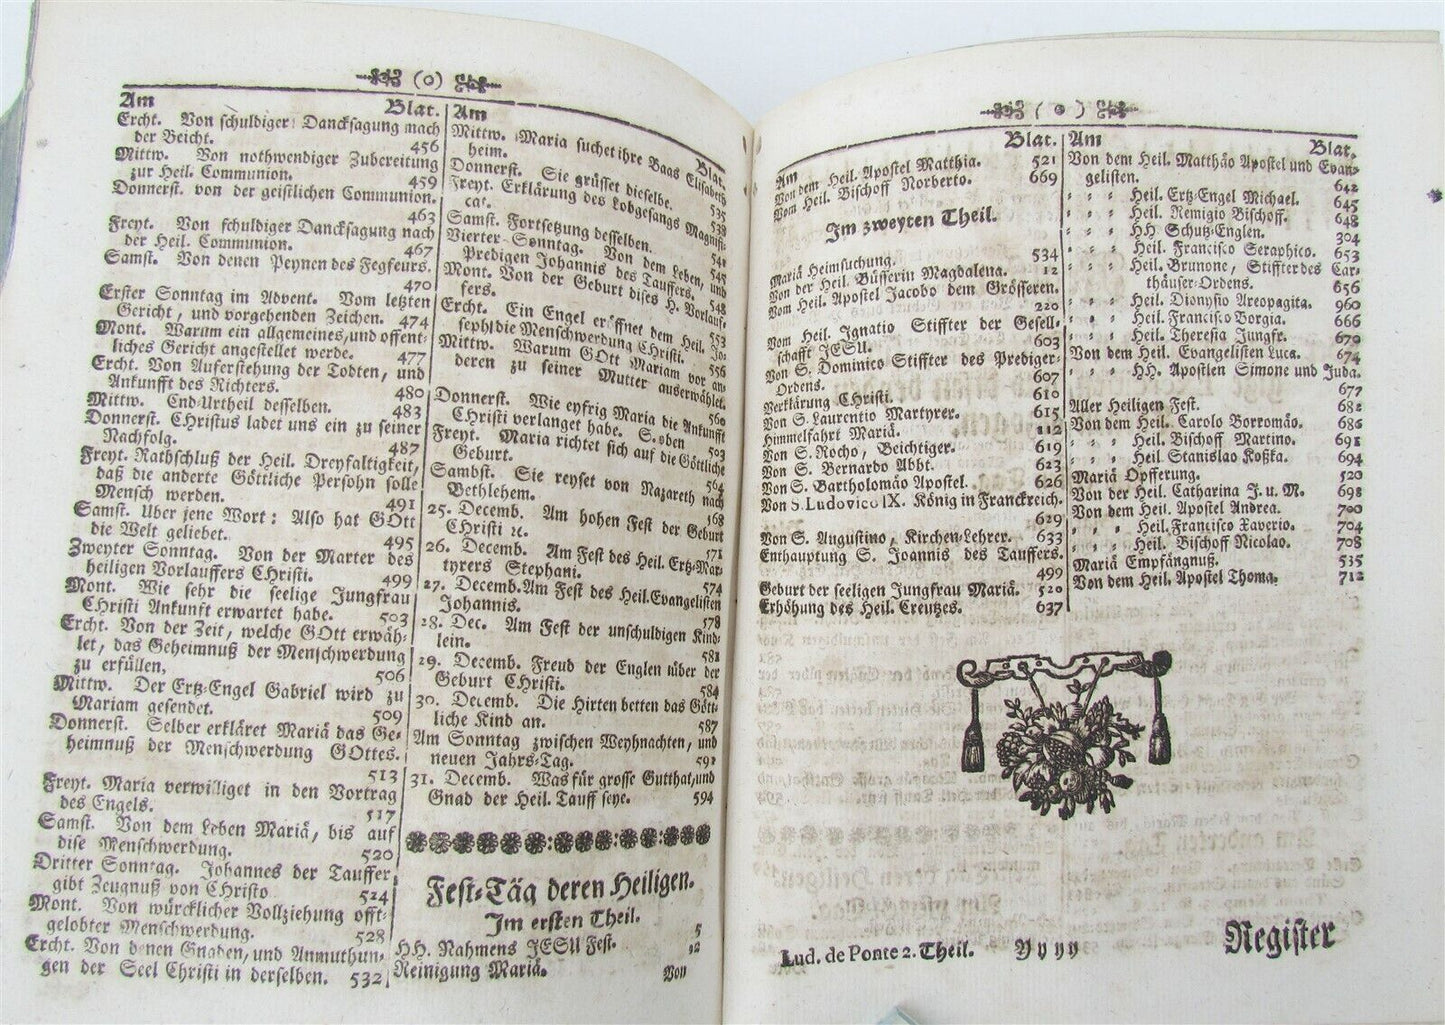 (o)
Am Blat.
Ercht. Von schuldiger Dancksagung nach
der Beicht. 456
Mittw. Von nothwendiger Zubereitung
zur Heil. Communion. 459
Donnerst. von der geistlichen Communion.
463
Freyt. Von schuldiger Dancksagung nach
der Heil. Communion. 467
Samst. Von denen Peynen des Fegfeurs.
470
Erster Sonntag im Advent. Vom letzten
Gericht, und vorgehenden Zeichen. 474
Mont. Warum ein allgemeines, und offent-
liches Gericht angestellet werde. 477
Ercht. Von Auferstehung der Todten, und
Ankunfft des Richters. 480
Mittw. End-Urtheil desselben. 483
Donnerst. CHristus ladet uns ein zu seiner
Nachfolg. 487
Freyt. Rathschluß der Heil. Dreyfaltigkeit,
daß die anderte Göttliche Persohn solle
Mensch werden. 491
Samst. Uber jene Wort: Also hat GOtt
die Welt geliebet. 495
Zweyter Sonntag. Von der Marter des
heiligen Vorlauffers CHristi. 499
Mont. Wie sehr die seelige Jungfrau
CHristi Ankunft erwartet habe. 503
Ercht. Von der Zeit, welche GOtt erwäh-
let, das Geheimnuß der Menschwerdung
zu erfüllen. 506
Mittw. Der Ertz-Engel Gabriel wird zu
Mariam gesendet. 509
Donnerst. Selber erkläret Mariä das Ge-
heimnuß der Menschwerdung GOttes.
513
Freyt. Maria verwilliget in den Vortrag
des Engels. 517
Samst. Von dem Leben Mariä, bis auf
dise Menschwerdung. 520
Dritter Sonntag. Johannes der Tauffer
gibt Zeugnuß von CHristo 524
Mont. Von würcklicher Vollziehung offt-
gelobter Menschwerdung. 528
Ercht. Von denen Gnaden, und Anmuthun-
gen der Seel Christi in derselben. 532
Am Blat.
Mittw. Maria suchet ihre Baas Elisabeth
heim. 535
Donnerst. Sie grüsset dieselbe. 538
Freyt. Erklärung des Lobgesangs Magnifi-
cat. 541
Samst. Fortsetzung desselben. 545
Vierter Sonntag. Von dem Leben, und
Predigen Johannis des Tauffers. 548
Mont. Von der Geburt dises H. Vorlauf-
fers. 553
Ercht. Ein Engel eröffnet dem Heil. Jo-
seph die Menschwerdung CHristi. 556
Mittw. Warum GOtt Mariam vor an-
deren zu seiner Mutter auserwählet.
560
Donnerst. Wie eyfrig Maria die Ankunfft
CHristi verlanget habe. S. oben 503
Freyt. Maria richtet sich auf die Göttliche
Geburt. 564
Sambst. Sie reyset von Nazareth nach
Bethlehem. 568
25. Decemb. Am hohen Fest der Geburt
CHristi ꝛc. 571
26. Decemb. Am Fest des Heil. Ertz-Mar-
tyrers Stephani. 574
27. Decemb. Am Fest des Heil. Evangelisten
Johannis. 578
28. Dec. Am Fest der unschuldigen Kind-
lein. 581
29. Decemb. Freud der Englen über der
Geburt CHristi. 584
30. Decemb. Die Hirten betten das Gött-
liche Kind an. 587
Am Sonntag zwischen Weyhnachten, und
neuen Jahrs-Tag. 591
31. Decemb. Was für grosse Gutthat, und
Gnad der Heil. Tauff seye. 594
Fest-Täg deren Heiligen.
Im ersten Theil.
HH. Nahmens JESU Fest. 5
Reinigung Mariä. 12
Von
(o)
Am Blat.
Von dem Heil. Apostel Matthia. 521
Vom Heil. Bischoff Norberto. 669
Im zweyten Theil.
Mariä Heimsuchung. 534
Von der Heil. Büsserin Magdalena. 12
Vom Heil. Apostel Jacobo dem Grösseren.
220
Vom Heil. Ignatio Stiffter der Gesell-
schafft JESU. 603
Von S. Dominico Stiffter des Prediger-
Ordens. 607
Verklärung CHristi. 610
Von S. Laurentio Martyrer. 615
Himmelfahrt Mariä. 112
Von S. Rocho, Beichtiger. 619
Von S. Bernardo Abbt. 623
Von S. Bartholomäo Apostel. 626
Von S. Ludovico IX. König in Franckreich.
629
Von S. Augustino, Kirchen-Lehrer. 633
Enthauptung S. Joannis des Tauffers.
499
Geburt der seeligen Jungfrau Mariä. 520
Erhöhung des Heil. Creutzes. 637
Am Blat.
Von dem Heil. Matthäo Apostel und Evan-
gelisten. 642
Heil. Ertz-Engel Michael. 645
Heil. Remigio Bischoff. 648
HH Schutz-Englen. 304
Heil. Francisco Seraphico. 653
Heil. Brunone, Stiffter des Car-
thäuser-Ordens. 656
Heil. Dionysio Areopagita. 960
Heil. Francisco Borgia. 666
Heil. Theresia Jungfr. 670
Von dem Heil. Evangelisten Luca. 674
HH. Apostlen Simone und Juda.
677
Aller Heiligen Fest. 682
Von dem Heil. Carolo Borromäo. 686
Heil. Bischoff Martino. 691
Heil. Stanislao Koßka. 694
Mariä Opfferung. 520
Von der Heil. Catharina J. u. M. 698
Von dem Heil. Apostel Andrea. 700
Heil. Francisco Xaverio. 704
Heil. Bischoff Nicolao. 708
Mariä Empfängnuß. 535
Von dem Heil. Apostel Thoma. 712
Lud. de Ponte 2. Theil. Yyyy Register